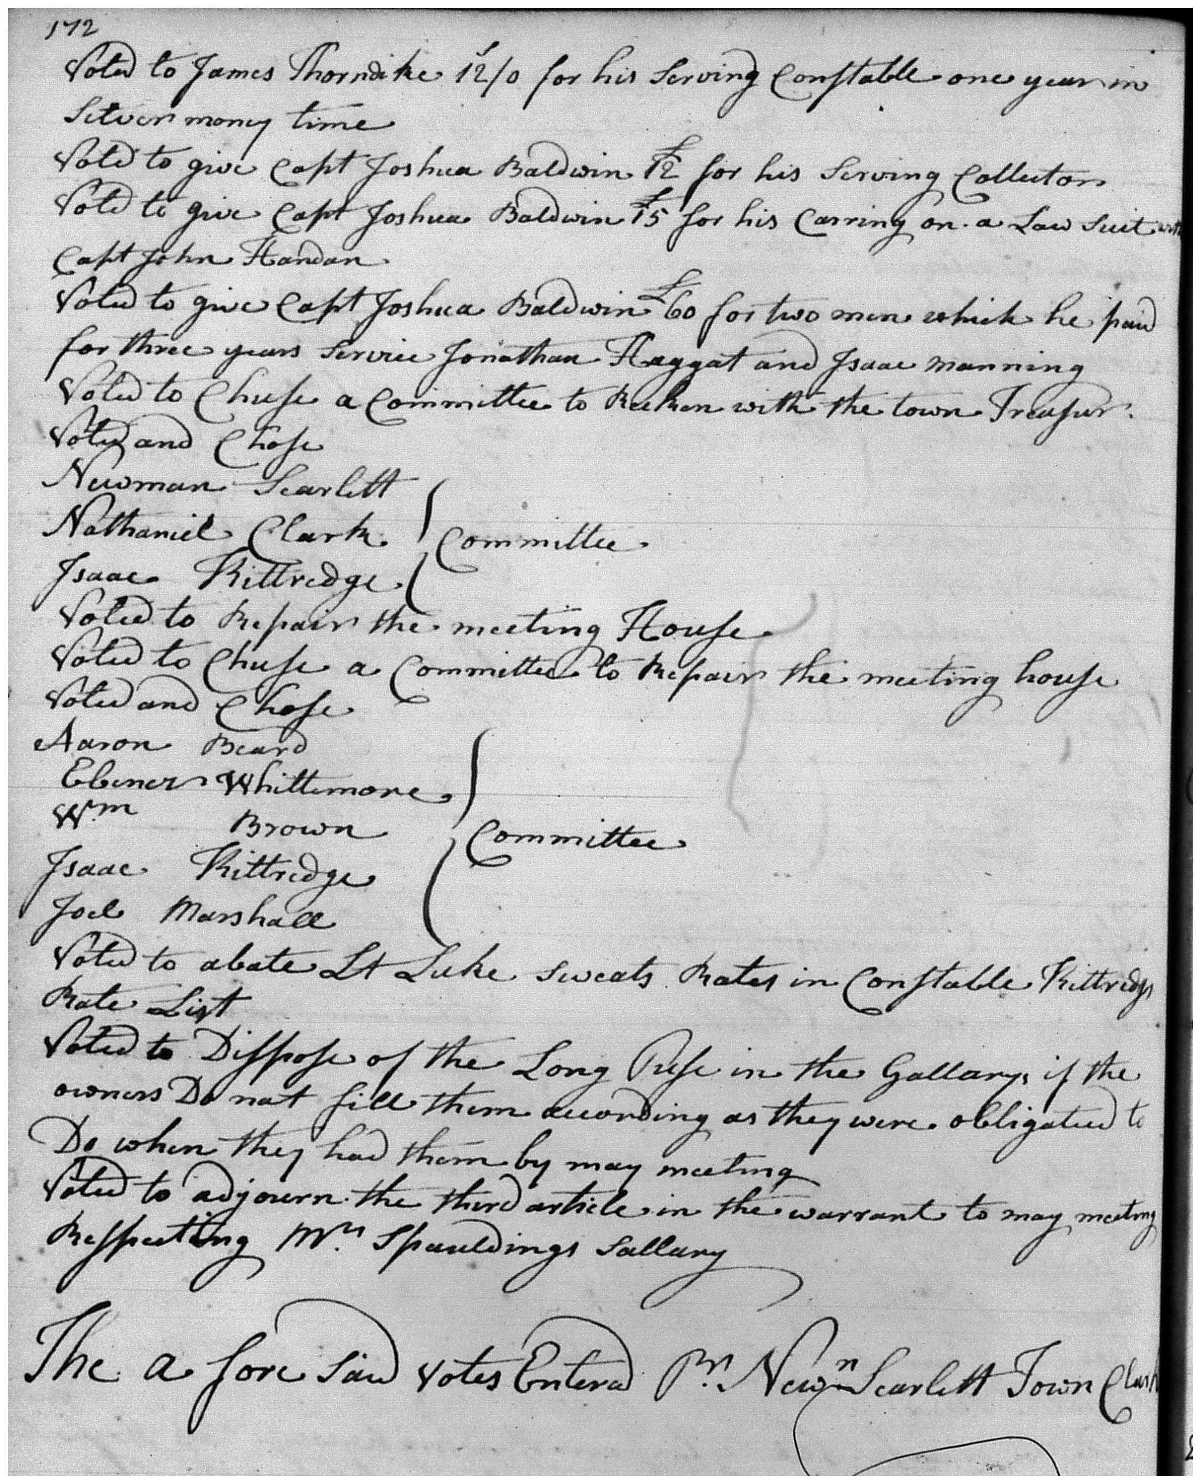 172
Voted to James Thorndike 12/0 for his Serving Constable one year in
Silver money time
Voted to give Capt Joshua Baldwin £12 for his Serving Collector
Voted to give Capt Joshua Baldwin £15 for his Carring on a Law Suit with
Capt John Handan
Voted to give Capt Joshua Baldwin £60 for two men which he paid
for three years Service Jonathan Haggat and Isaac Manning
Voted to Chuse a Committee to Reckon with the town Treasur.
Voted and Chose
Newman Scarlett
Nathaniel Clark Committee
Isaac Kittredge
Voted to Repair the meeting House
Voted to Chuse a Committee to Repair the meeting house
Voted and Chose
Aaron Beard
Ebenezr Whittemore
Wm Brown Committee
Isaac Kittredge
Joel Marshall
Voted to abate Lt Luke Sweats Rates in Constable Kittredgs
Rate List
Voted to Dispose of the Long Puse in the Gallary, if the
owners Do not fill them according as they were obligated to
Do when they had them by may meeting
Voted to adjourn the third article in the warrant to may meeting
Respecting Mr. Spauldings Sallary
The a fore Said Votes Entered Pr. Newn Scarlett Town Clark